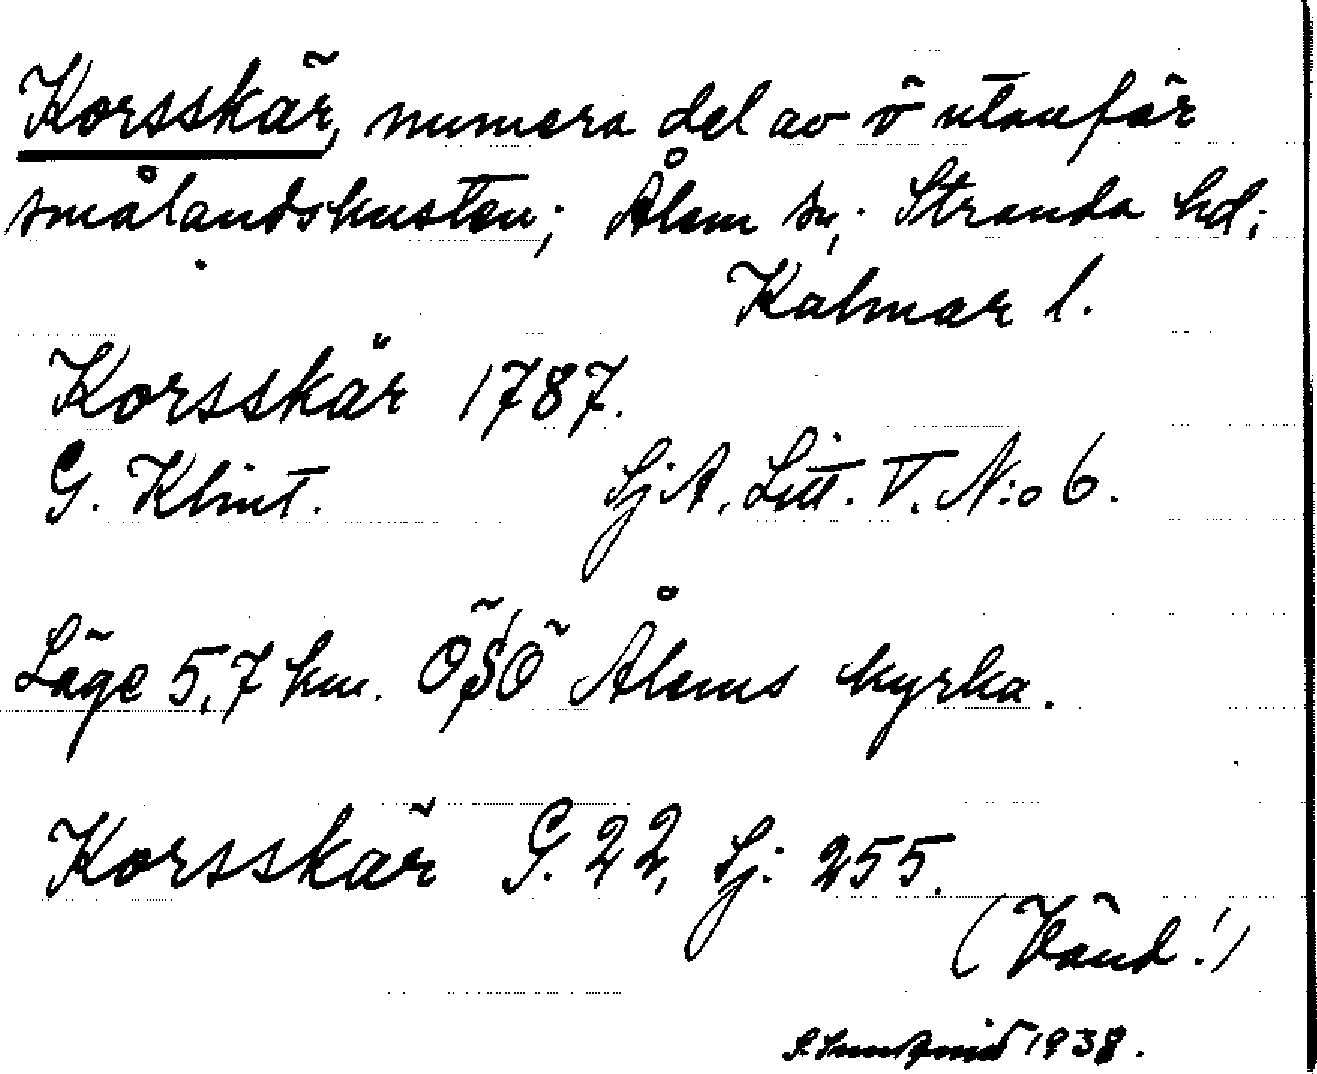 Korsskär, numera del av ö utanför
smålandskusten; Ålem sn; Stranda hd;
Kalmar l.
Korsskär 1787.
G. Klint. SjA. Litt. V. N:o 6.
Läge 5,7 km. ÖSÖ Ålems kyrka.
Korsskär G. 22, Sj: 255.
(Vänd!)
1938.